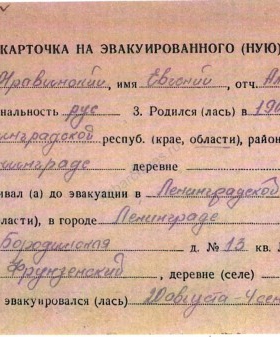 КАРТОЧКА НА ЭВАКУИРОВАННОГО (НУЮ)
Мравинский, имя Евгений, отч. Ал
ональность рус 3. Родился (лась) в 190
инградской респуб. (крае, области), район
нинграде деревне
ивал (а) до эвакуации в Ленинградской
бласти), в городе Ленинграде
Бородинская д. № 13 кв.
Фрунзенский, деревне (селе)
эвакуировался (лась) 20 августа - 4 сен